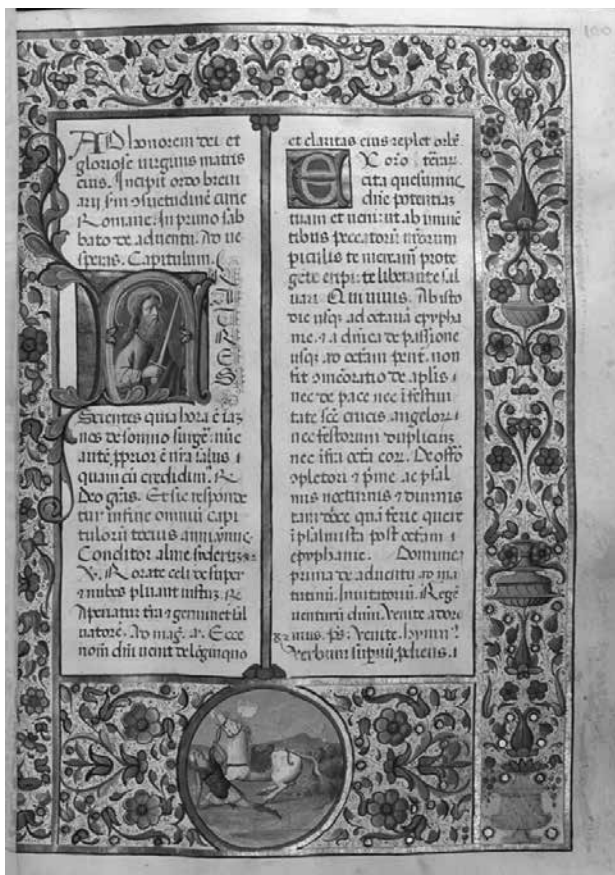 AD honorem dei et
gloriose virginis matris
eius. Incipit ordo brevi
arii s̄m ɔsuetudinē curie
Romane. In primo sab
bato de adventu. Ad ve
speras. Capitulum.
FRATRES
Scientes quia hora ē iaȝ
nos de somno surgē: nūc
autē ꝓprior ē nr̄a salus ⁊
quam cū credidim̄. ℞.
Deo gr̄as. Et sic respondē
tur in fine omniū capi
tulorū tocius anni. ymnꝰ.
Conditor alme siderū
℣. Rorate celi desuper
⁊ nubes pluant iustuȝ. ℞.
Aperiatur tr̄a ⁊ germinet sal
vatorē. Ad maḡ. añ. Ecce
nom̄ dn̄i venit de lōginquo
et claritas eius replet orbē.
Exc oro
cita quesumus
dn̄e potentiaȝ
tuam et veni: ut ab iminē
tibus peccatorū nr̄orum
piculis te meream̄ prote
gete eripi: te liberante sal
vari. Qui vivis. Ab isto
die usqȝ ad octavā epypha
nie. ⁊ a dn̄ica de passione
usqȝ ad octam̄ pent. non
fit ɔmēoratio de apl̄is ⁊
nec de pace nec ī festivi
tate scē crucis angelorū
nec festorum dupliciuȝ
nec īfra octa cor. De offō
ɔpletorii ⁊ pͥme ac psal
mis nocturnis ⁊ diurnis
ī psalmista post octam̄
epyphanie. Dominica
prima de adventu ad ma
tutinū. Invitatoriū. Regē
venturū dn̄m. Venite ador̄
emus. ps̄. Venite. hymnꝰ.
Verbum supnū ꝓdiens. ⁊
100